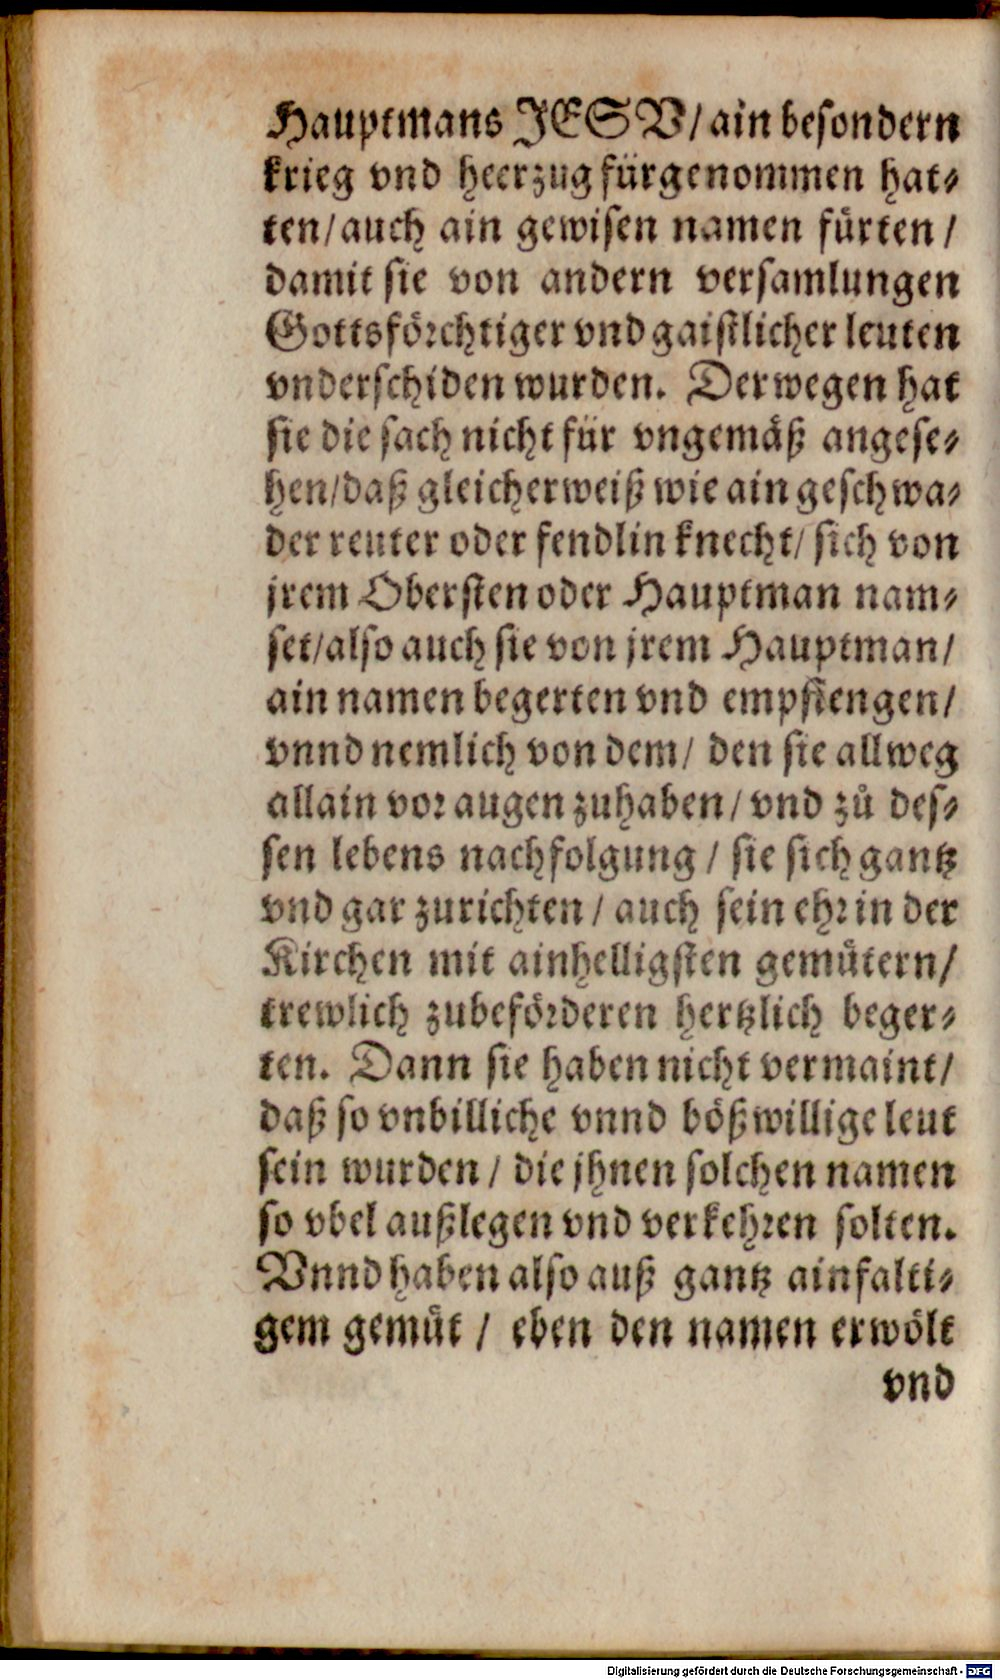 Hauptmans JESV/ ain besondern
krieg vnd heerzug fürgenommen hat⸗
ten/ auch ain gewisen namen fürten /
damit sie von andern versamlungen
Gottsförchtiger vnd gaistlicher leuten
vnderschiden wurden. Derwegen hat
sie die sach nicht für vngemäß angese⸗
hen/ daß gleicherweiß wie ain geschwa⸗
der reuter oder fendlin knecht/ sich von
jrem Obersten oder Hauptman nam⸗
set/ also auch sie von jrem Hauptman/
ain namen begerten vnd empfiengen/
vnnd nemlich von dem/ den sie allweg
allain vor augen zuhaben/ vnd zů des⸗
sen lebens nachfolgung / sie sich gantz
vnd gar zurichten / auch sein ehr in der
Kirchen mit ainhelligsten gemütern/
trewlich zubeförderen hertzlich beger⸗
ten. Dann sie haben nicht vermaint/
daß so vnbilliche vnnd bößwillige leut
sein wurden / die jhnen solchen namen
so vbel außlegen vnd verkehren solten.
Vnnd haben also auß gantz ainfalti⸗
gem gemüt / eben den namen erwölt
vnd
Digitalisierung gefördert durch die Deutsche Forschungsgemeinschaft - DFG